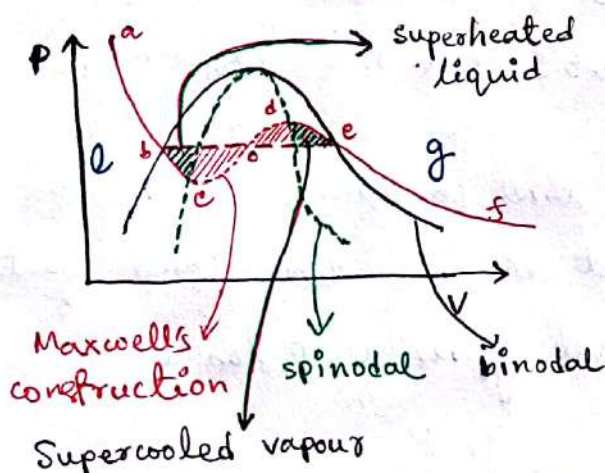 superheated
liquid
P
a
l
b
c
o
d
e
g
f
V
Maxwell's
construction
spinodal
binodal
Supercooled vapour